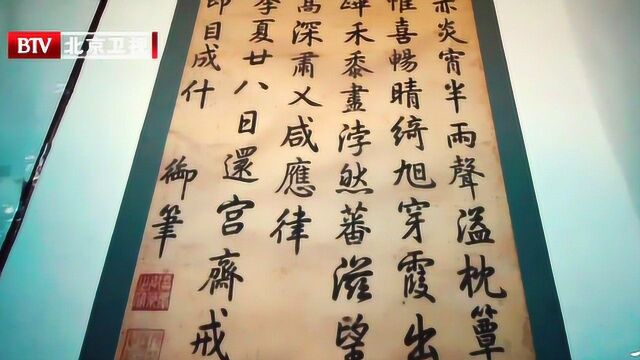 BTV 北京卫视
炎宵半雨聲溢枕簟
惟喜暢晴綺旭穿霞出
禾黍盡浡然蕃滋望
深肅乂咸應律
季夏廿八日還宮齋戒
即目成什
御筆